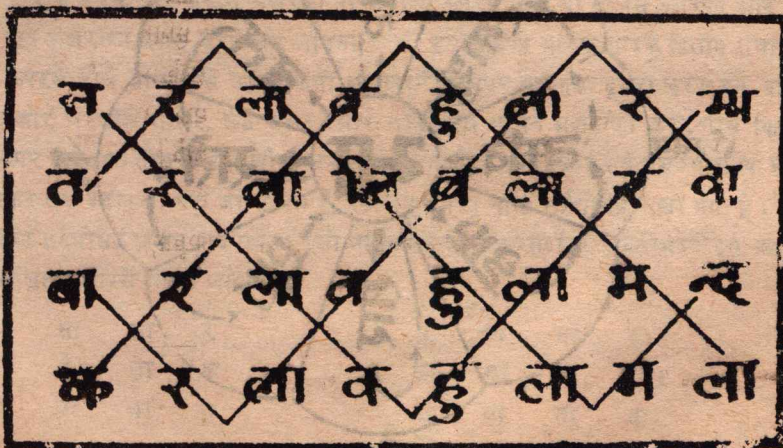 स र ला व हु ला र म्भ
त र ला लि ब ला र वा
बा र ला व हु ला म न्द
क र ला व हु ला म ला